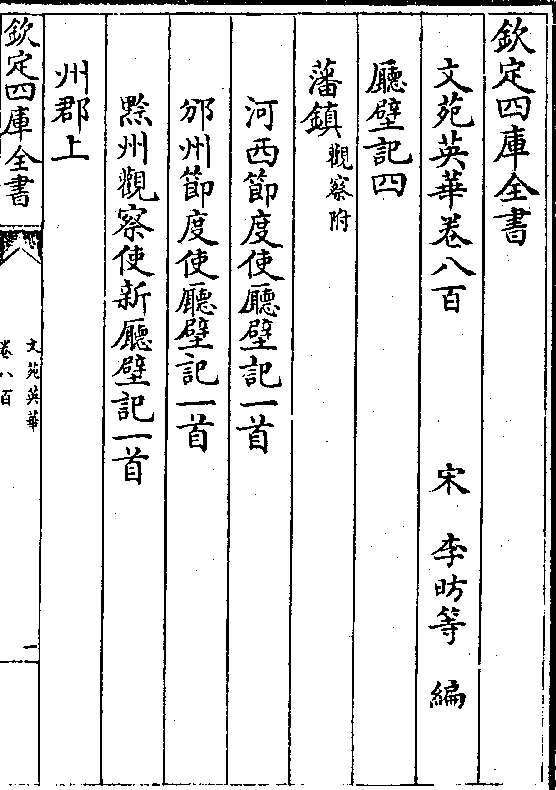 欽定四庫全書
文苑英華卷八百
宋　李昉等　編
廳壁記四
藩鎮觀察附
河西節度使廳壁記一首
邠州節度使廳壁記一首
黔州觀察使新廳壁記一首
州郡上
欽定四庫全書
文苑英華
卷八百
一